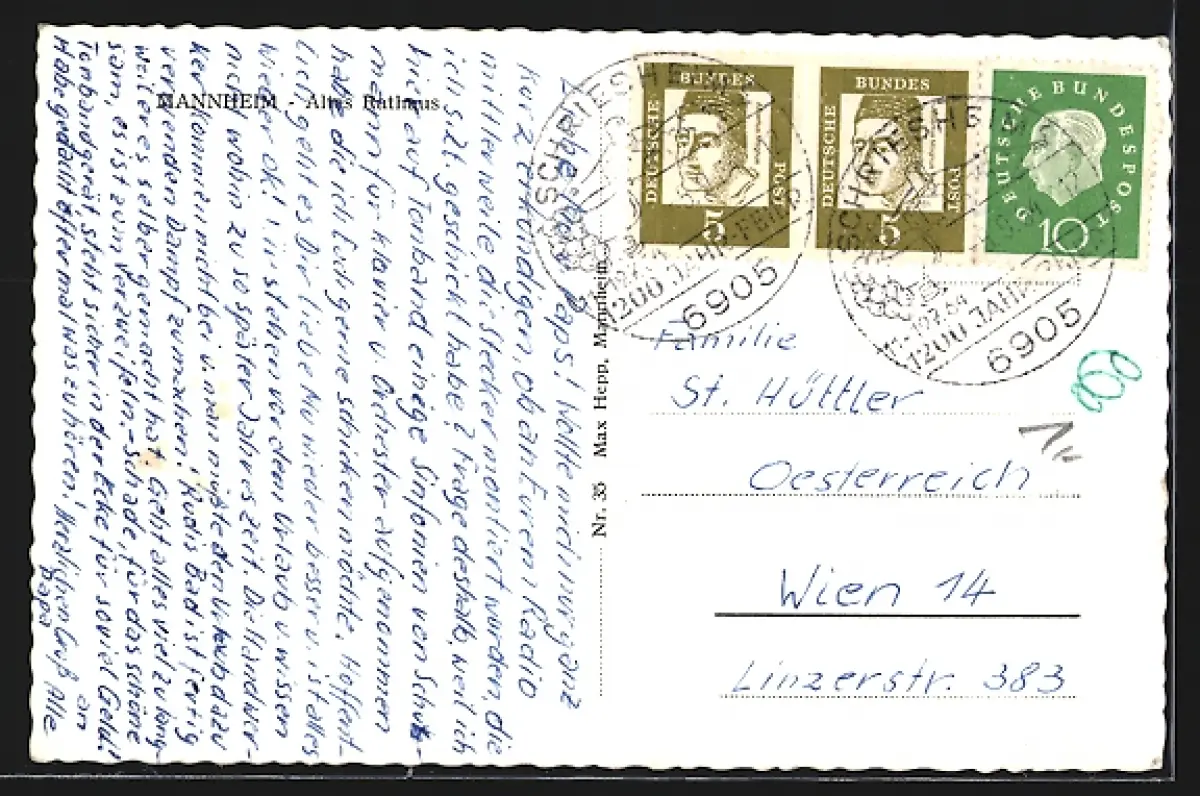 MANNHEIM - Altes Rathaus
Liebe Paps! Wollte mich nur ganz
kurz erkundigen, ob an Eurem Radio
mittlerweile die Stecker montiert wurden, die
ich s. Zt. geschickt habe? Frage deshalb, weil ich
hier auf Tonband einige Sinfonien von Schu-
mann für Klavier u. Orchester aufgenommen
habe die ich Euch gerne schicken möchte. Hoffent-
lich geht es Dir liebe No wieder besser u. ist alles
wieder ok! Wir stehen vor dem Urlaub u. wissen
nicht wohin zu so später Jahreszeit. Die Handwer-
ker kommen nicht bei u. man müßte den Urlaub dazu
verwenden Dampf zu machen! Rudis Bad ist fertig
weil er es selber gemacht hat. Geht alles viel zu lang-
sam, es ist zum Verzweifeln. - Schade, für das schöne
Tonbandgerät, steht sicher in der Ecke für soviel Geld!
Habe gedacht öfter mal was zu hören! Herzlichen Gruß Alle
an
Papa
Nr. 35 Max Hepp, Mannheim
DEUTSCHE BUNDES POST
5
DEUTSCHE BUNDES POST
5
DEUTSCHE BUNDESPOST
10
SCHRIESHEIM
1200 JAHR-FEIER
6905
SCHRIESHEIM
1200 JAHR-FEIER
6905
Familie
St. Hüttler
Oesterreich
Wien 14
Linzerstr. 383